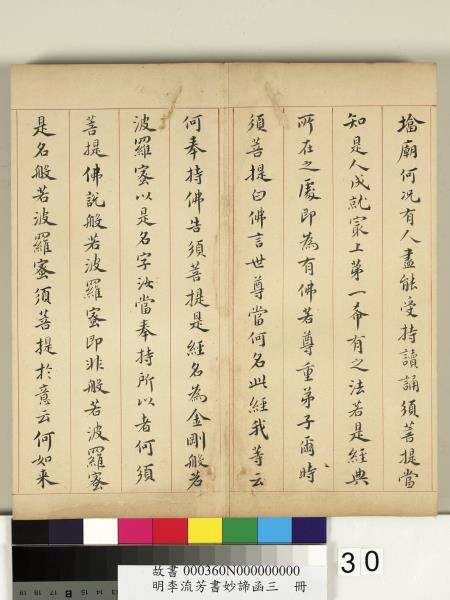 墖廟何況有人盡能受持讀誦須菩提當
知是人成就冣上第一希有之法若是經典
所在之處即為有佛若尊重弟子爾時
須菩提白佛言世尊當何名此經我等云
何奉持佛告須菩提是經名為金剛般若
波羅蜜以是名字汝當奉持所以者何須
菩提佛說般若波羅蜜即非般若波羅蜜
是名般若波羅蜜須菩提於意云何如来
30
故書 000360N000000000
明李流芳書妙諦函三 冊